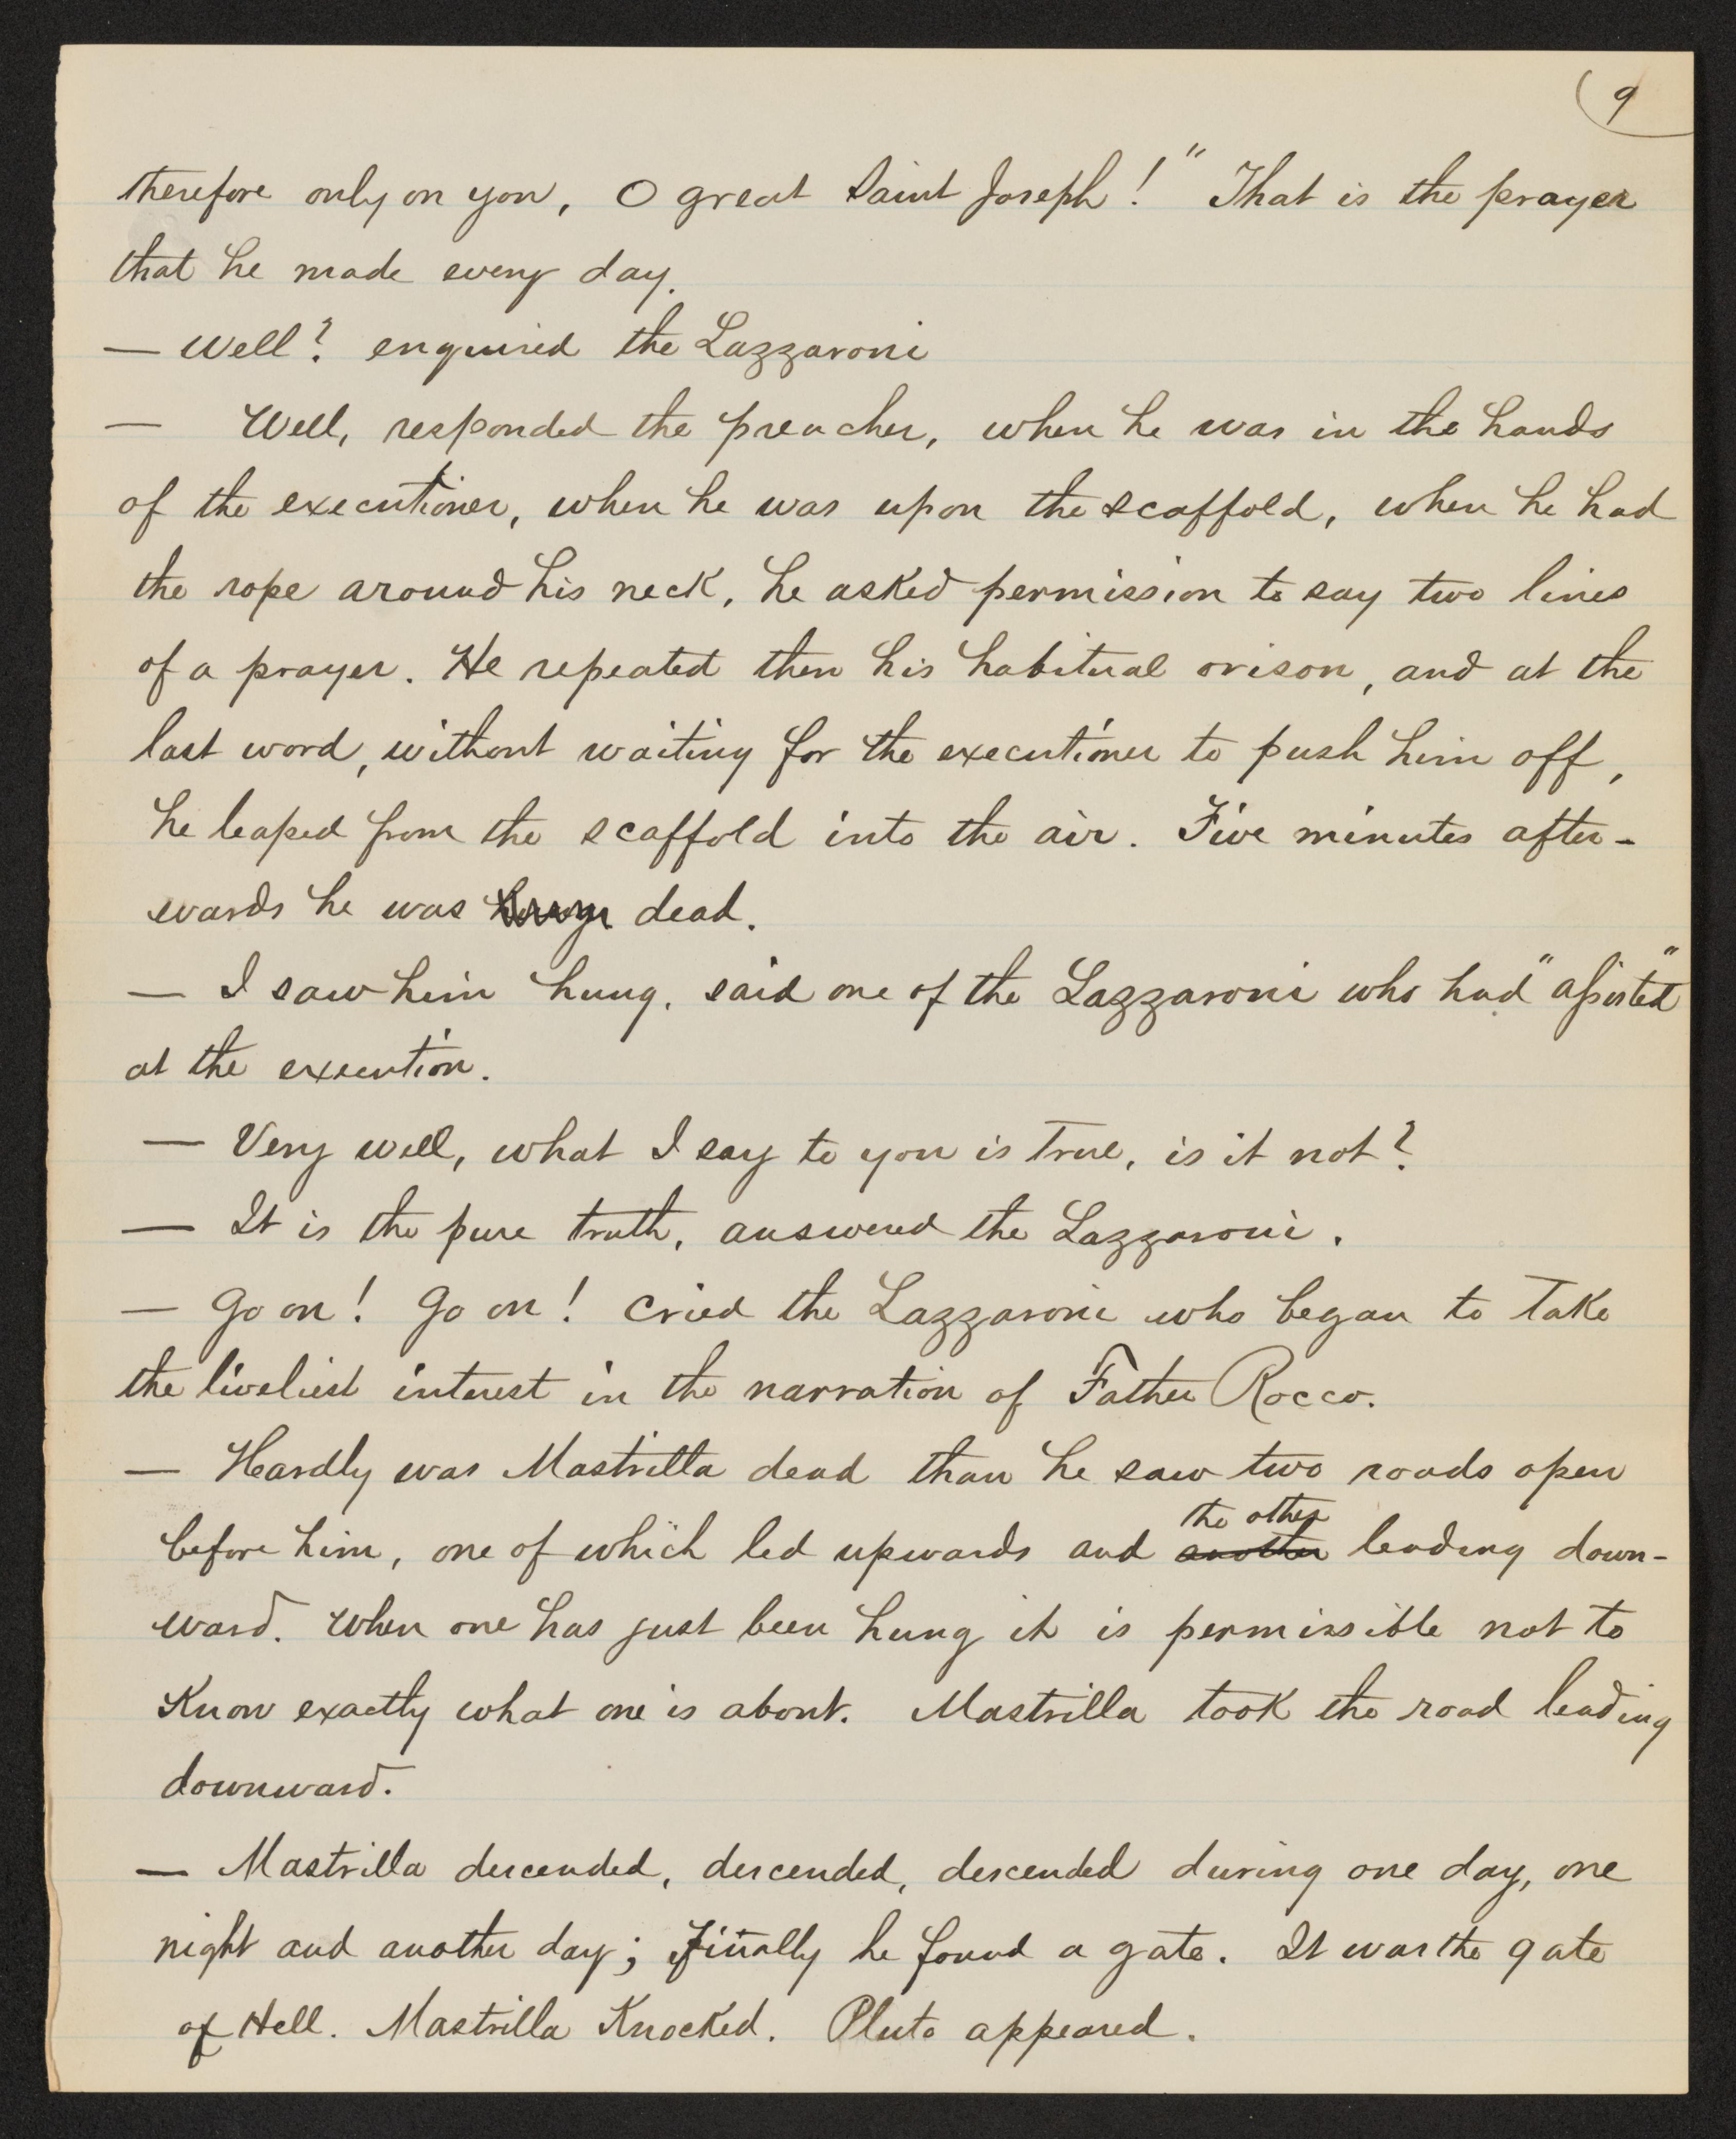 9
therefore only on you, O great Saint Joseph!" That is the prayer
that he made every day.
— Well? enquired the Lazzaroni
— Well, responded the preacher, when he was in the hands
of the executioner, when he was upon the scaffold, when he had
the rope around his neck, he asked permission to say two lines
of a prayer. He repeated then his habitual orison, and at the
last word, without waiting for the executioner to push him off,
he leaped from the scaffold into the air. Five minutes after-
wards he was hung dead.
— I saw him hung, said one of the Lazzaroni who had "assisted"
at the execution.
— Very well, what I say to you is true, is it not?
— It is the pure truth, answered the Lazzaroni.
— Go on! Go on! cried the Lazzaroni who began to take
the liveliest interest in the narration of Father Rocco.
— Hardly was Mastrilla dead than he saw two roads open
the other
before him, one of which led upwards and another leading down-
ward. When one has just been hung it is permissible not to
Know exactly what one is about. Mastrilla took the road leading
downward.
— Mastrilla descended, descended, descended during one day, one
night and another day; finally he found a gate. It was the gate
of Hell. Mastrilla Knocked. Pluto appeared.